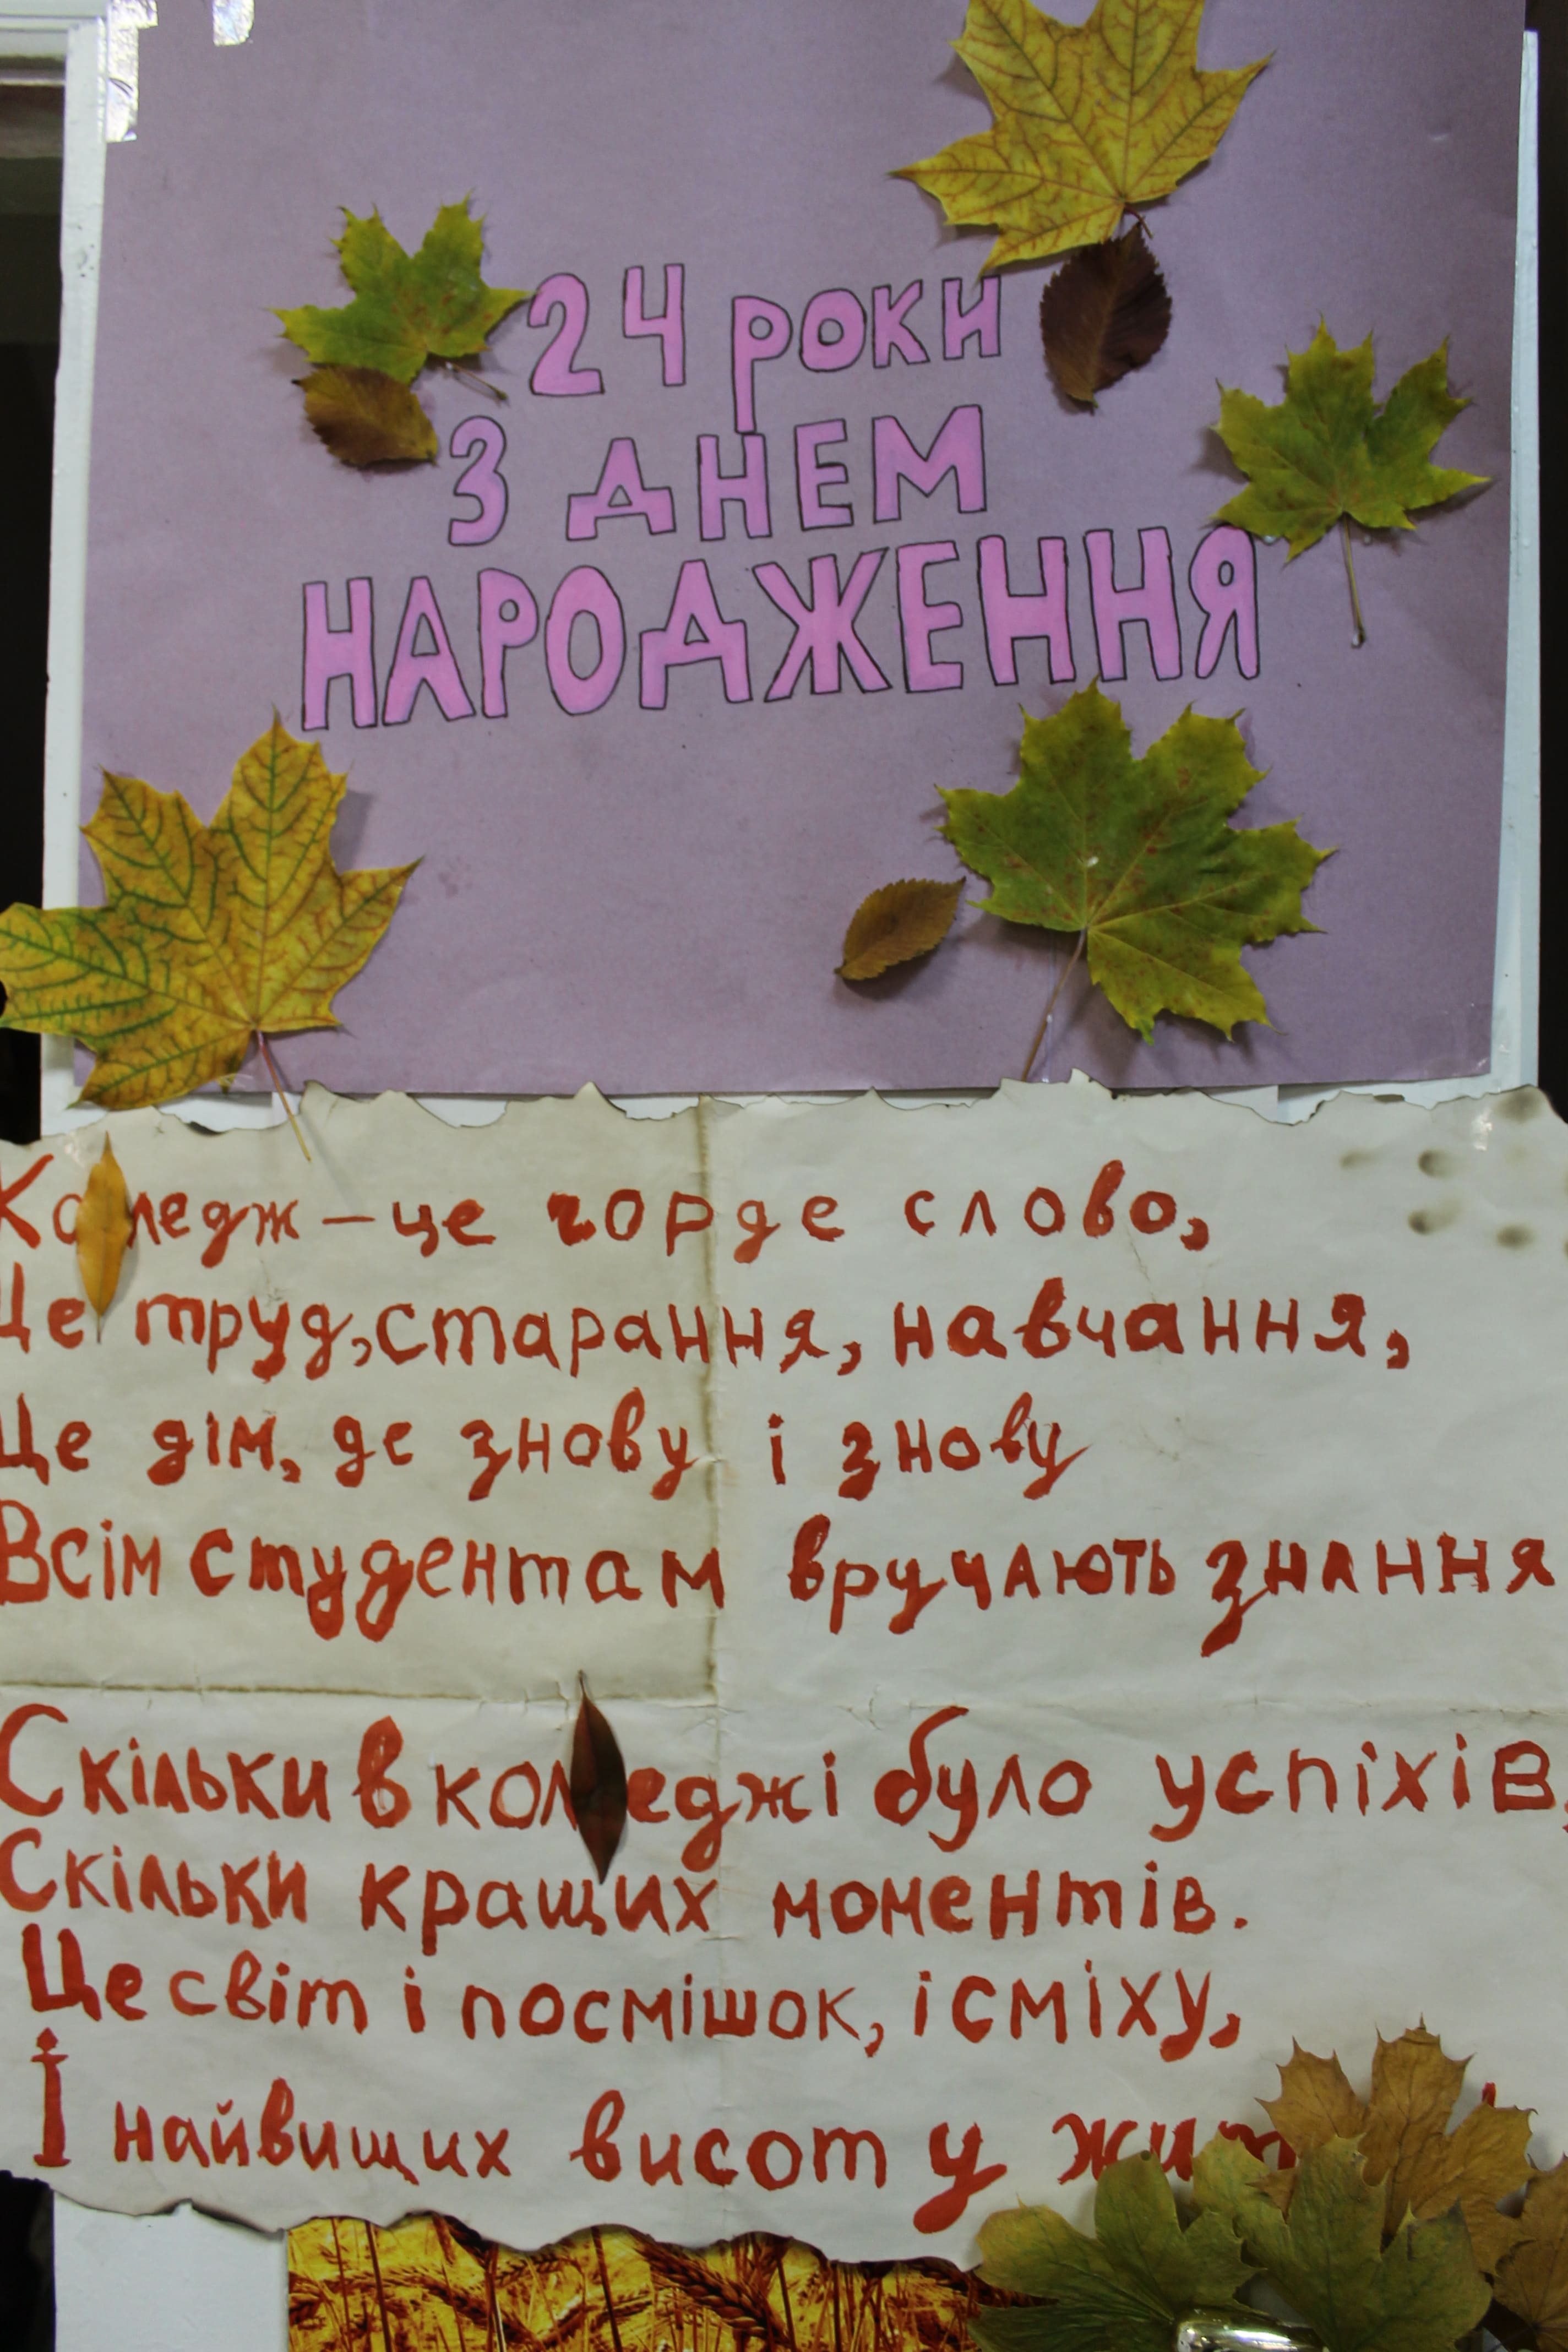 24 роки
З ДНЕМ
НАРОДЖЕННЯ
Коледж – це горде слово,
Це труд, старання, навчання,
Це дім, де знову і знову
Всім студентам вручають знання
Скільки в коледжі було успіхів,
Скільки кращих моментів.
Це світ і посмішок, і сміху,
І найвищих висот у